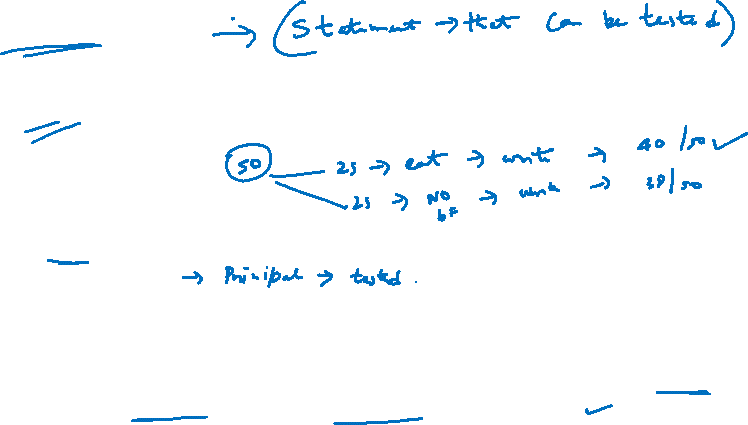 → (Statement → that can be tested)
50
25 → eat → write → 40/50 ✓
25 → NO bf → write → 38/50
→ Prinipal → tested.